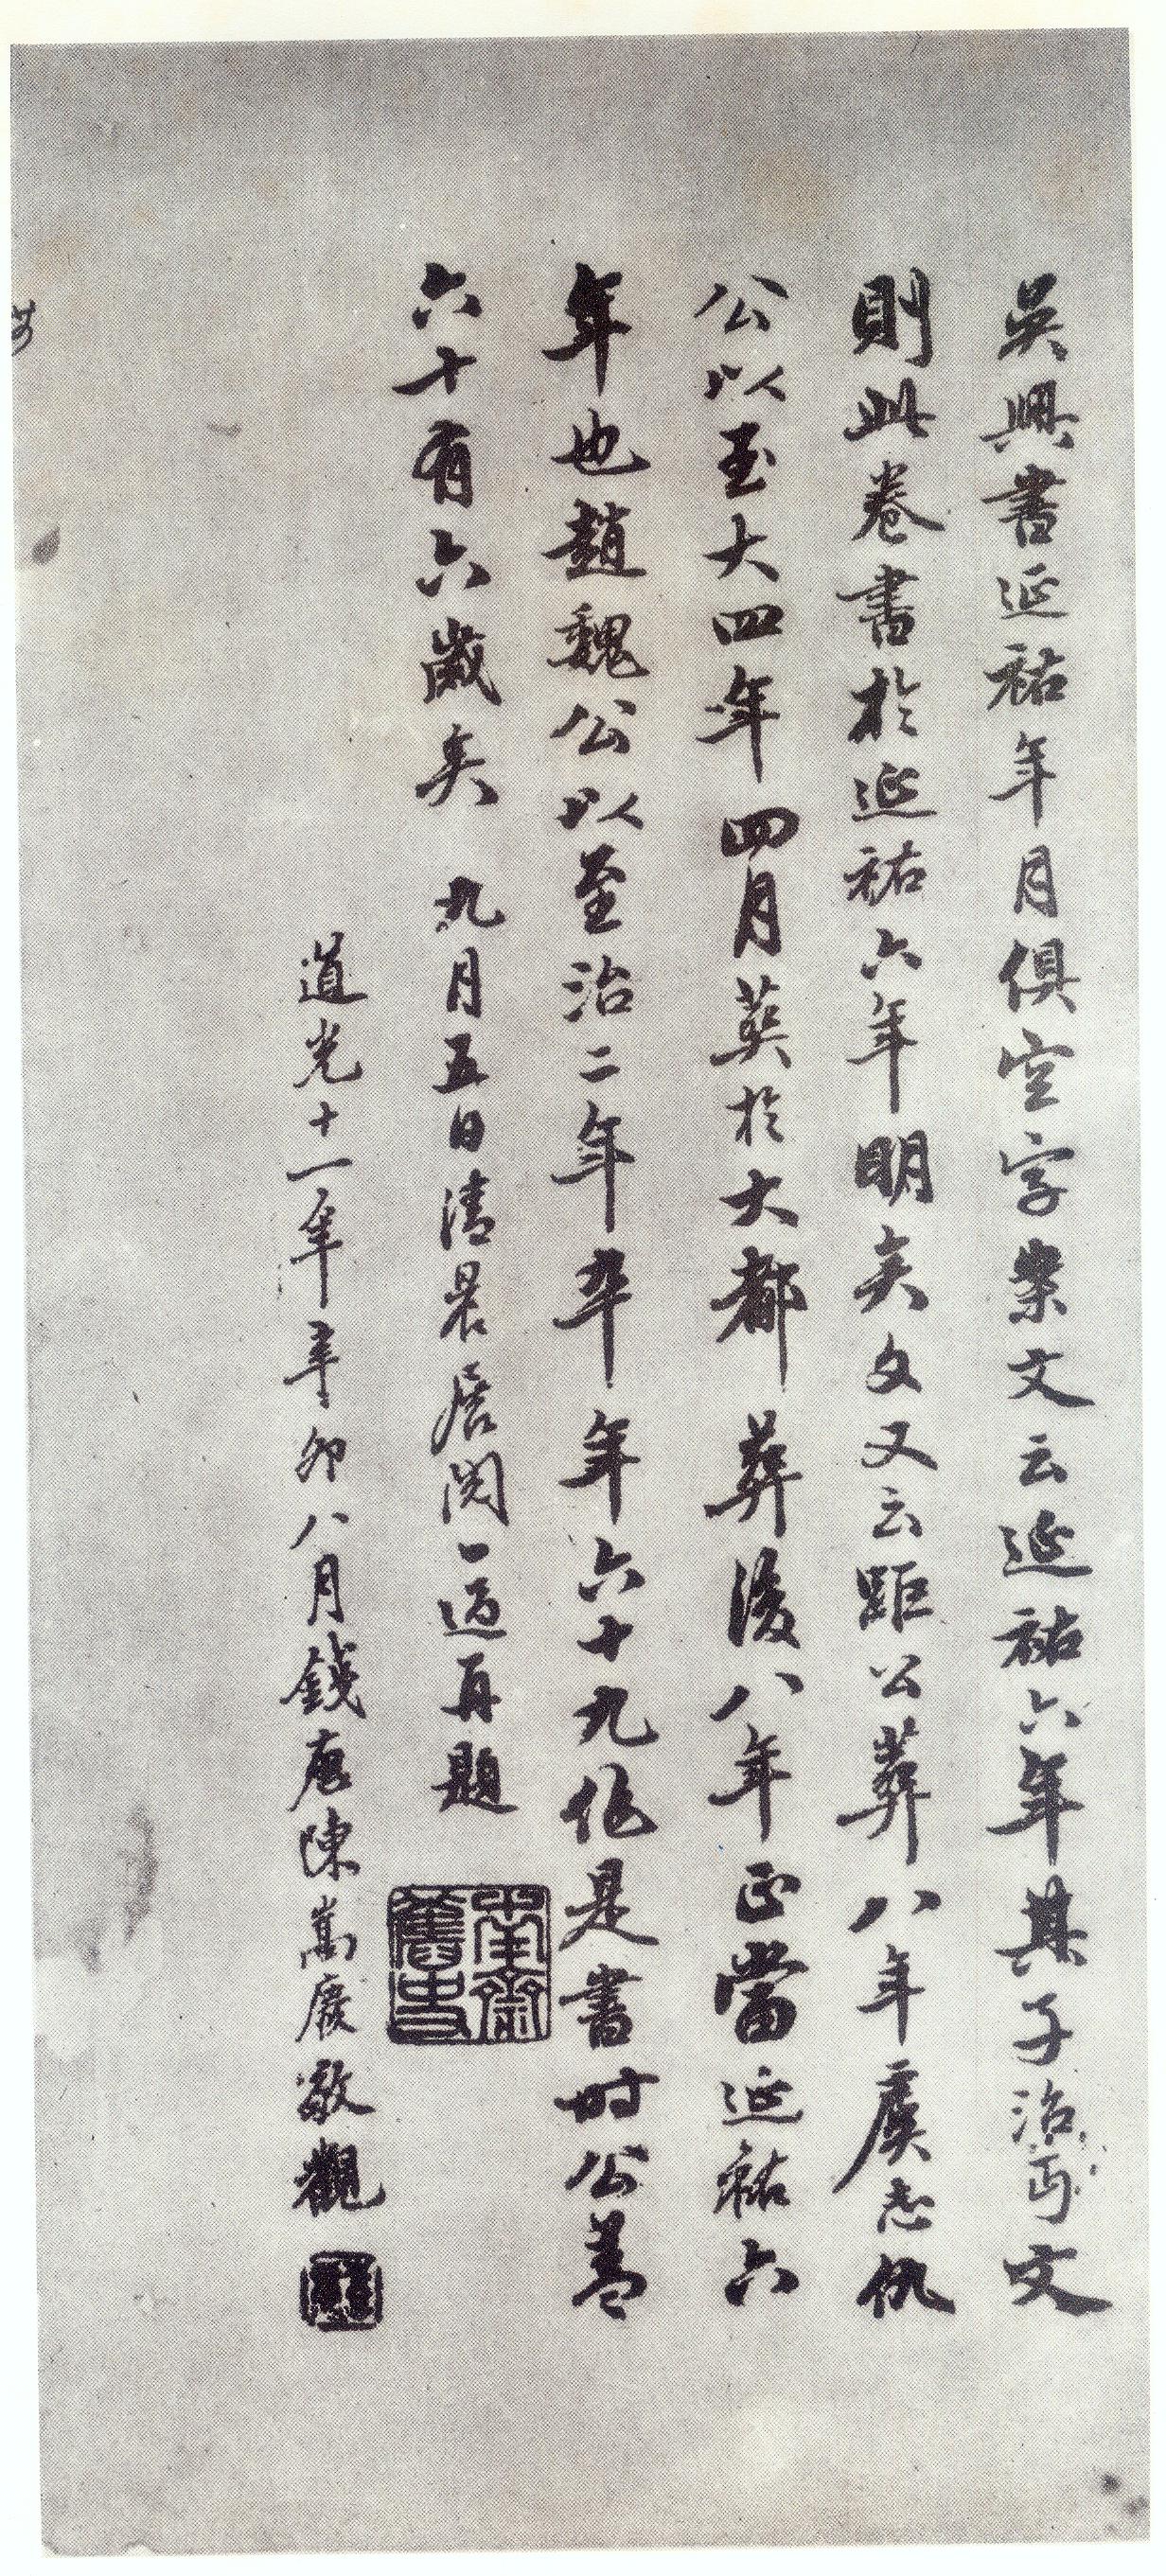 吳興書延祐年月俱空字案文云延祐六年其子治丐文
則此卷書於延祐六年明矣文又云距公葬八年虞志仇
公以至大四年四月葬於大都葬後八年正當延祐六
年也趙魏公以至治二年卒年六十九作是書時公蓋
六十有六歲矣 九月五日清晨展閱一過再題
南齋舊史
道光十一年辛卯八月錢唐陳嵩慶敬觀